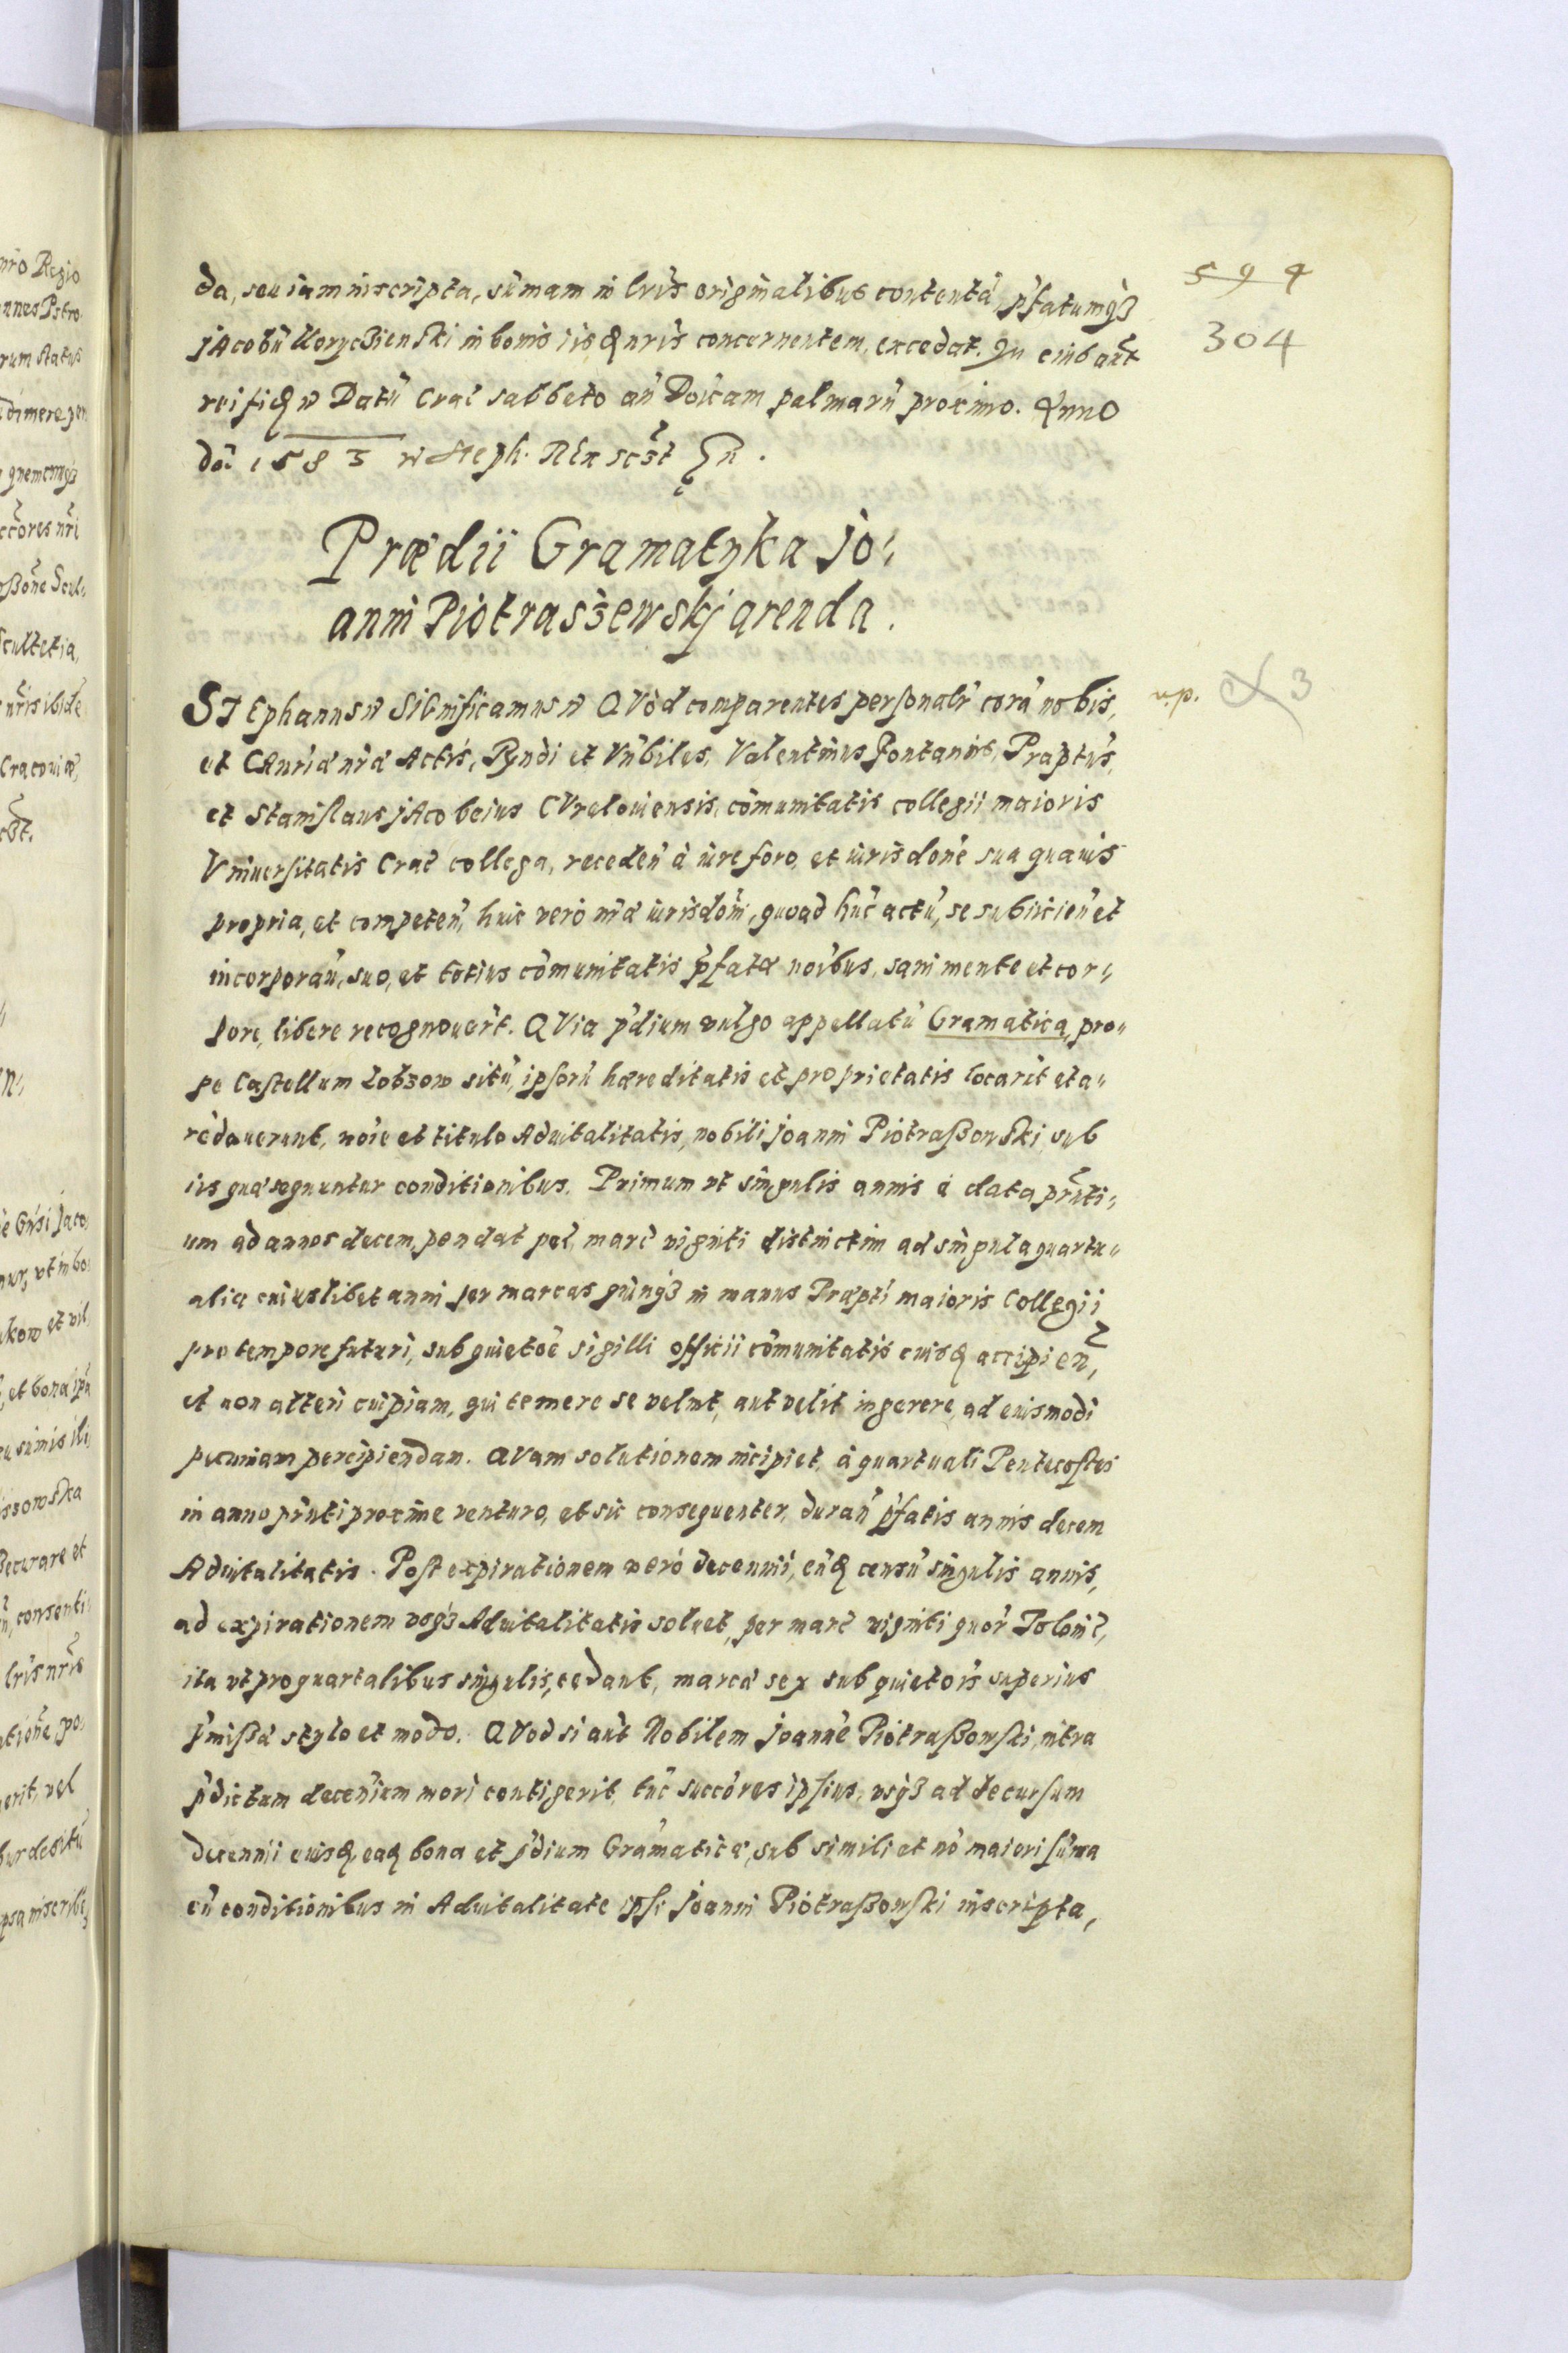 da, seu iam inscripta, sūmam in lrīs originalibus contentā, pfatumqȝ
jAcobū Korycȝienski in bonis iisqȝ nrīs concernentem, excedat. In cuius aūt
rei fi Datū Crac̄ sabbato an̄ Doīcam palmarū proximo. Anno
do: 1583 Steph. Rex
594
304
Prædii Gramatyka jo:
anni Piotrasȝewskj arenda.
v.p. 3
STEphanus Significamus QVòd comparentes personalr̄ corā nobis,
et CAnriæ nr̄æ Actis, Rn̄di et Vn̄biles, Valentinus Fontanus, Præptūs,
et Stanislaus jAcobeius CVrelouiensis, cōmunitatis collegii maioris
Vniuersitatis Crac̄ collega, receden̄ à iure foro, et iurisdone sua quauis
propria, et competen̄, huic verò nr̄æ iurisdoni, quoad hūc actū, se subiicien̄ et
incorporan̄, suo, et totius cōmunitatis pfatæ noībus, sani mente et cor:,
pore, libere recognouer̄t. QVia p̄dium vulgo appellatū Gramatica, pro:,
pe Castellum Lobȝow sitū, ipsorū hæreditatis et proprietatis locarūt et a:,
rēdauerunt, noīe et titulo Aduitalitatis, nobili joanni Piotraßowski, sub
iis quæ sequuntur conditionibus. Primum vt singulis annis à data pr̄nti:,
um ad annos decem, pendat pec̄, marc̄ viginti distinctim ad singula quartu:,
alia cuiuslibet anni per marcas quinqȝ in manus Præpti maioris Collegii
pro tempore futuri, sub quietōe sigilli officii cōmunitatis eiusdē accipien̄,
et non alteri cuipiam, qui temere se velut, aut velit ingerere, ad eiusmodi
pecuniam percipiendam. QVam solutionem incipiet, à quartuali Pentecostes
in anno pr̄nti proxime venturo, et sic consequenter, duran̄ pfatis annis decem
Aduitalitatis. Post expirationem verò decennii, eūdē censū singulis annis,
ad expirationem vsqȝ Aduitalitatis soluet, per marc̄ viginti quor̄ Polonic̄,
ita vt pro quartalibus singulis, cedant, marcæ sex sub quietoīs superius
p̄missæ stylo et modo. QVod si aūt Nobilem joannē Piotraßowski, intra
p̄dictum decenium mori contigerit, tūc succōres ipsius, vsqȝ ad decursum
decennii eiusdē, eadē bona et p̄dium Grāmaticæ, sub simili et nō maiori sūma
cū conditionibus in Aduitalitate ipsi joanni Piotraßowski inscripta,